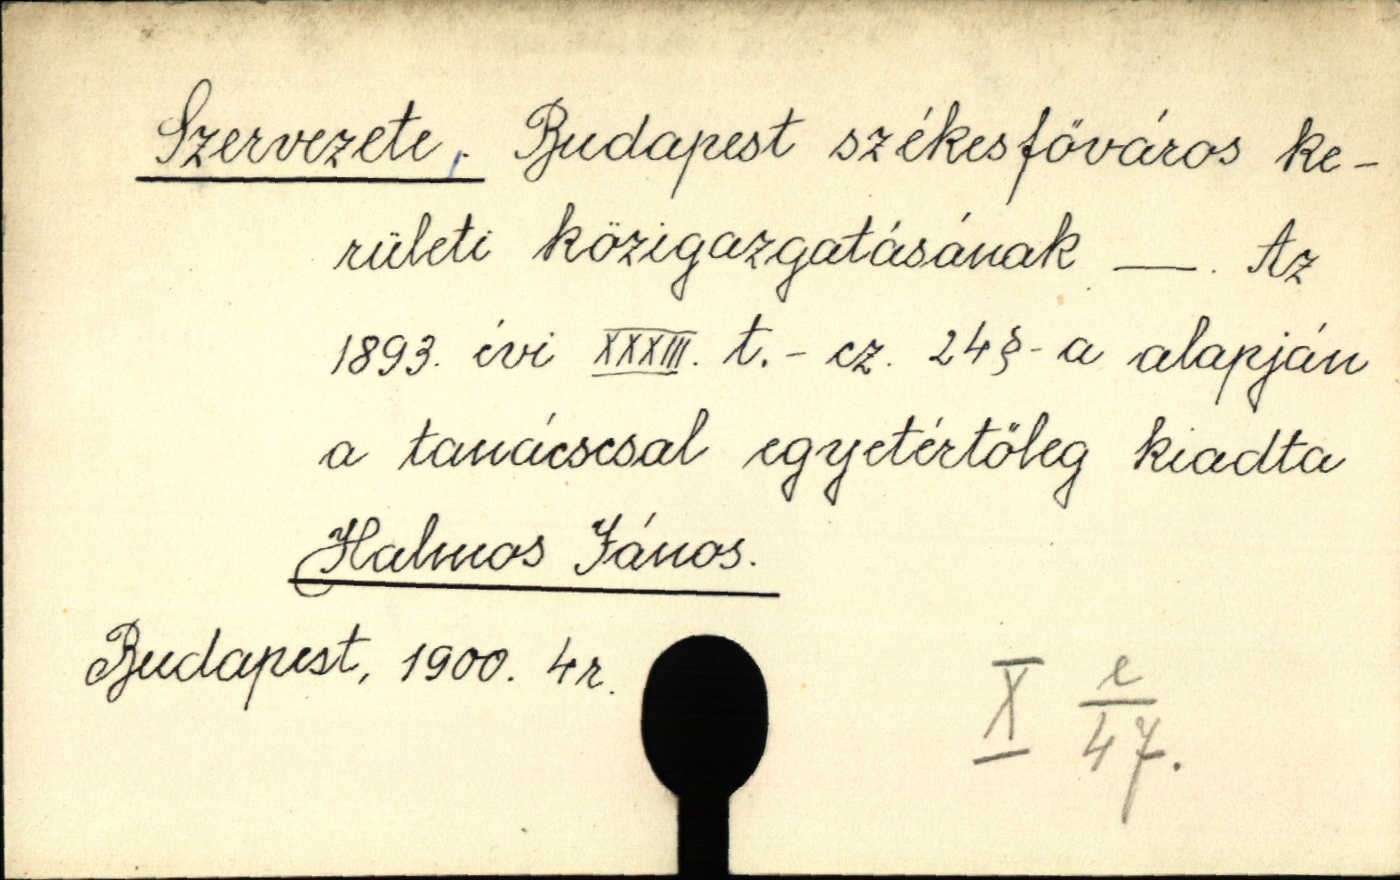 Szervezete, Budapest székesfőváros ke-
rületi közigazgatásának —. Az
1893. évi XXXIII. t.-cz. 24§-a alapján
a tanácscsal egyetértőleg kiadta
Halmos János.
Budapest, 1900. 4r.
X e/47.